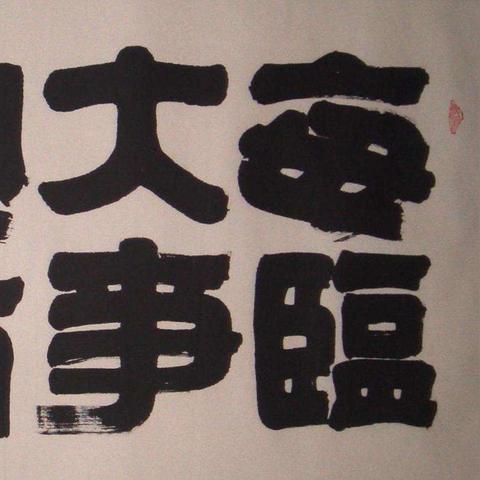 每臨
大事